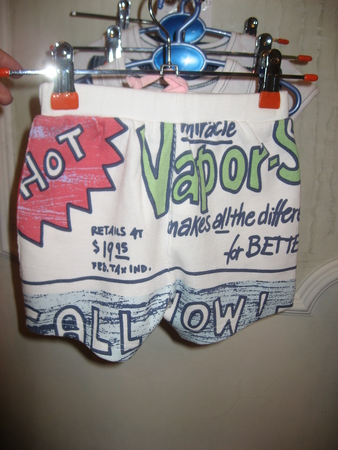 HOT
miracle
Vapor-S
makes all the differen
for BETTE
RETAILS AT
$19.95
FED. TAX IND.
CALL NOW!